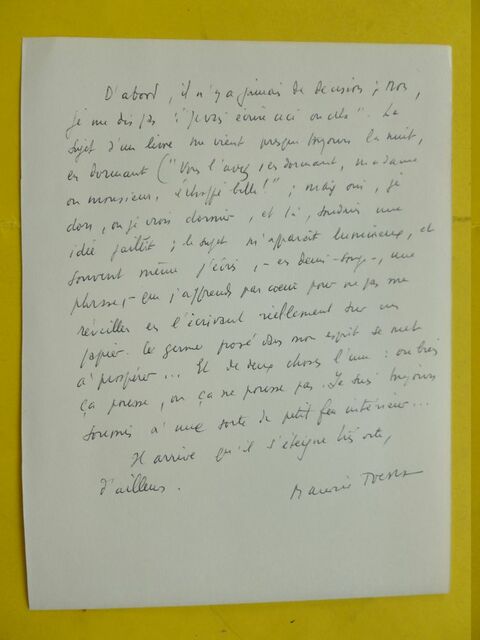 D'abord, il n'y a jamais de décision ; non,
je me dis pas : "je vais écrire ceci ou cela". Le
sujet d'un livre me vient presque toujours la nuit,
en dormant ("Vous l'avez, en dormant, madame
ou monsieur, échappé belle !" ; mais oui, je
dors, ou je crois dormir, et là, soudain une
idée jaillit ; le sujet m'apparaît lumineux, et
souvent même j'écris, - en demi-songe, - une
phrase, - que j'apprends par coeur pour ne pas me
réveiller en l'écrivant réellement sur un
papier. Le germe posé dans mon esprit se met
à prospérer... Et de deux choses l'une : ou bien
ça pousse, ou ça ne pousse pas. Je suis toujours
soumis à une sorte de petit feu intérieur...
Il arrive qu'il s'éteigne très vite,
d'ailleurs.
Maurice Toesca